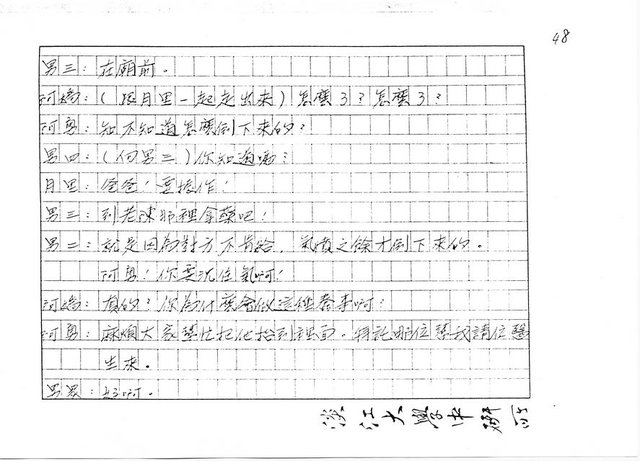 48
男三：在廟前。
阿嬌：（跟月里一起走出來）怎麼了？怎麼了？
阿勇：知不知道怎麼倒下來的？
男四：（向男三）你知道嗎？
月里：爸爸！要振作！
男三：到老陳那裡拿藥吧！
男二：就是因為對方不肯給，氣憤之餘才倒下來的。
阿勇！你要沉住氣啊！
阿嬌：真的？你為什麼會做這種蠢事啊！
阿勇：麻煩大家幫忙把他抬到裡面。拜託哪位幫我請位醫
生來。
男眾：好啊。
淡江大學中研所